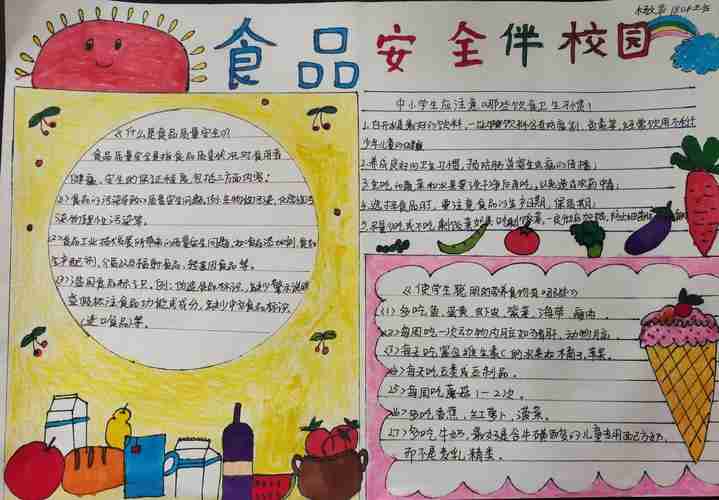 食品安全伴校园
么什么是食品质量安全的?
食品质量安全是指食品质量状况对食用者
健康、安全的保证程度,包括三方面内容:
(1)食品的污染导致的质量安全问题,例:生物性污染、化学性污
染物理性化污染等。
(2)食品工业技术发展所带来的质量安全问题,如食品添加剂,食品
生产配剂,介质以及辐射食品,转基因食品等。
(3)滥用食品标识,例:伪造食品标识,缺少警示说明
虚假标注食品功能或成分,缺少中文食品标识
(进口食品)等。
中小学生应注意哪些饮食卫生习惯!
1.白开水是最好的饮料,一些饮料含有防腐剂、色素等,经常饮用不利于
少年儿童的健康
2.养成良好的卫生习惯,预防肠道寄生虫病的传播;
3.生吃的蔬菜和水果要洗干净后再吃,以免造成农药中毒;
4.选择食品时,要注意食品的生产日期、保质期;
5.尽量少吃或不吃剩饭菜,如需吃剩饭菜,一定彻底加热,防止细菌
么使学生聪明的营养食物类
(1)多吃鱼、蛋黄、虾皮、紫菜、海带、瘦肉。
(2)每周吃一次动物内脏如猪肝、动物脑。
(3)每天吃富含维生素C的水果如橘子,苹果。
(4)每天吃豆类或豆制品。
(5)每周吃蘑菇1-2次。
(6)多吃香蕉、红萝卜、菠菜。
(7)多吃牛奶,最好是含牛磺酸的儿童专用配方奶,
而不是麦乳精类。